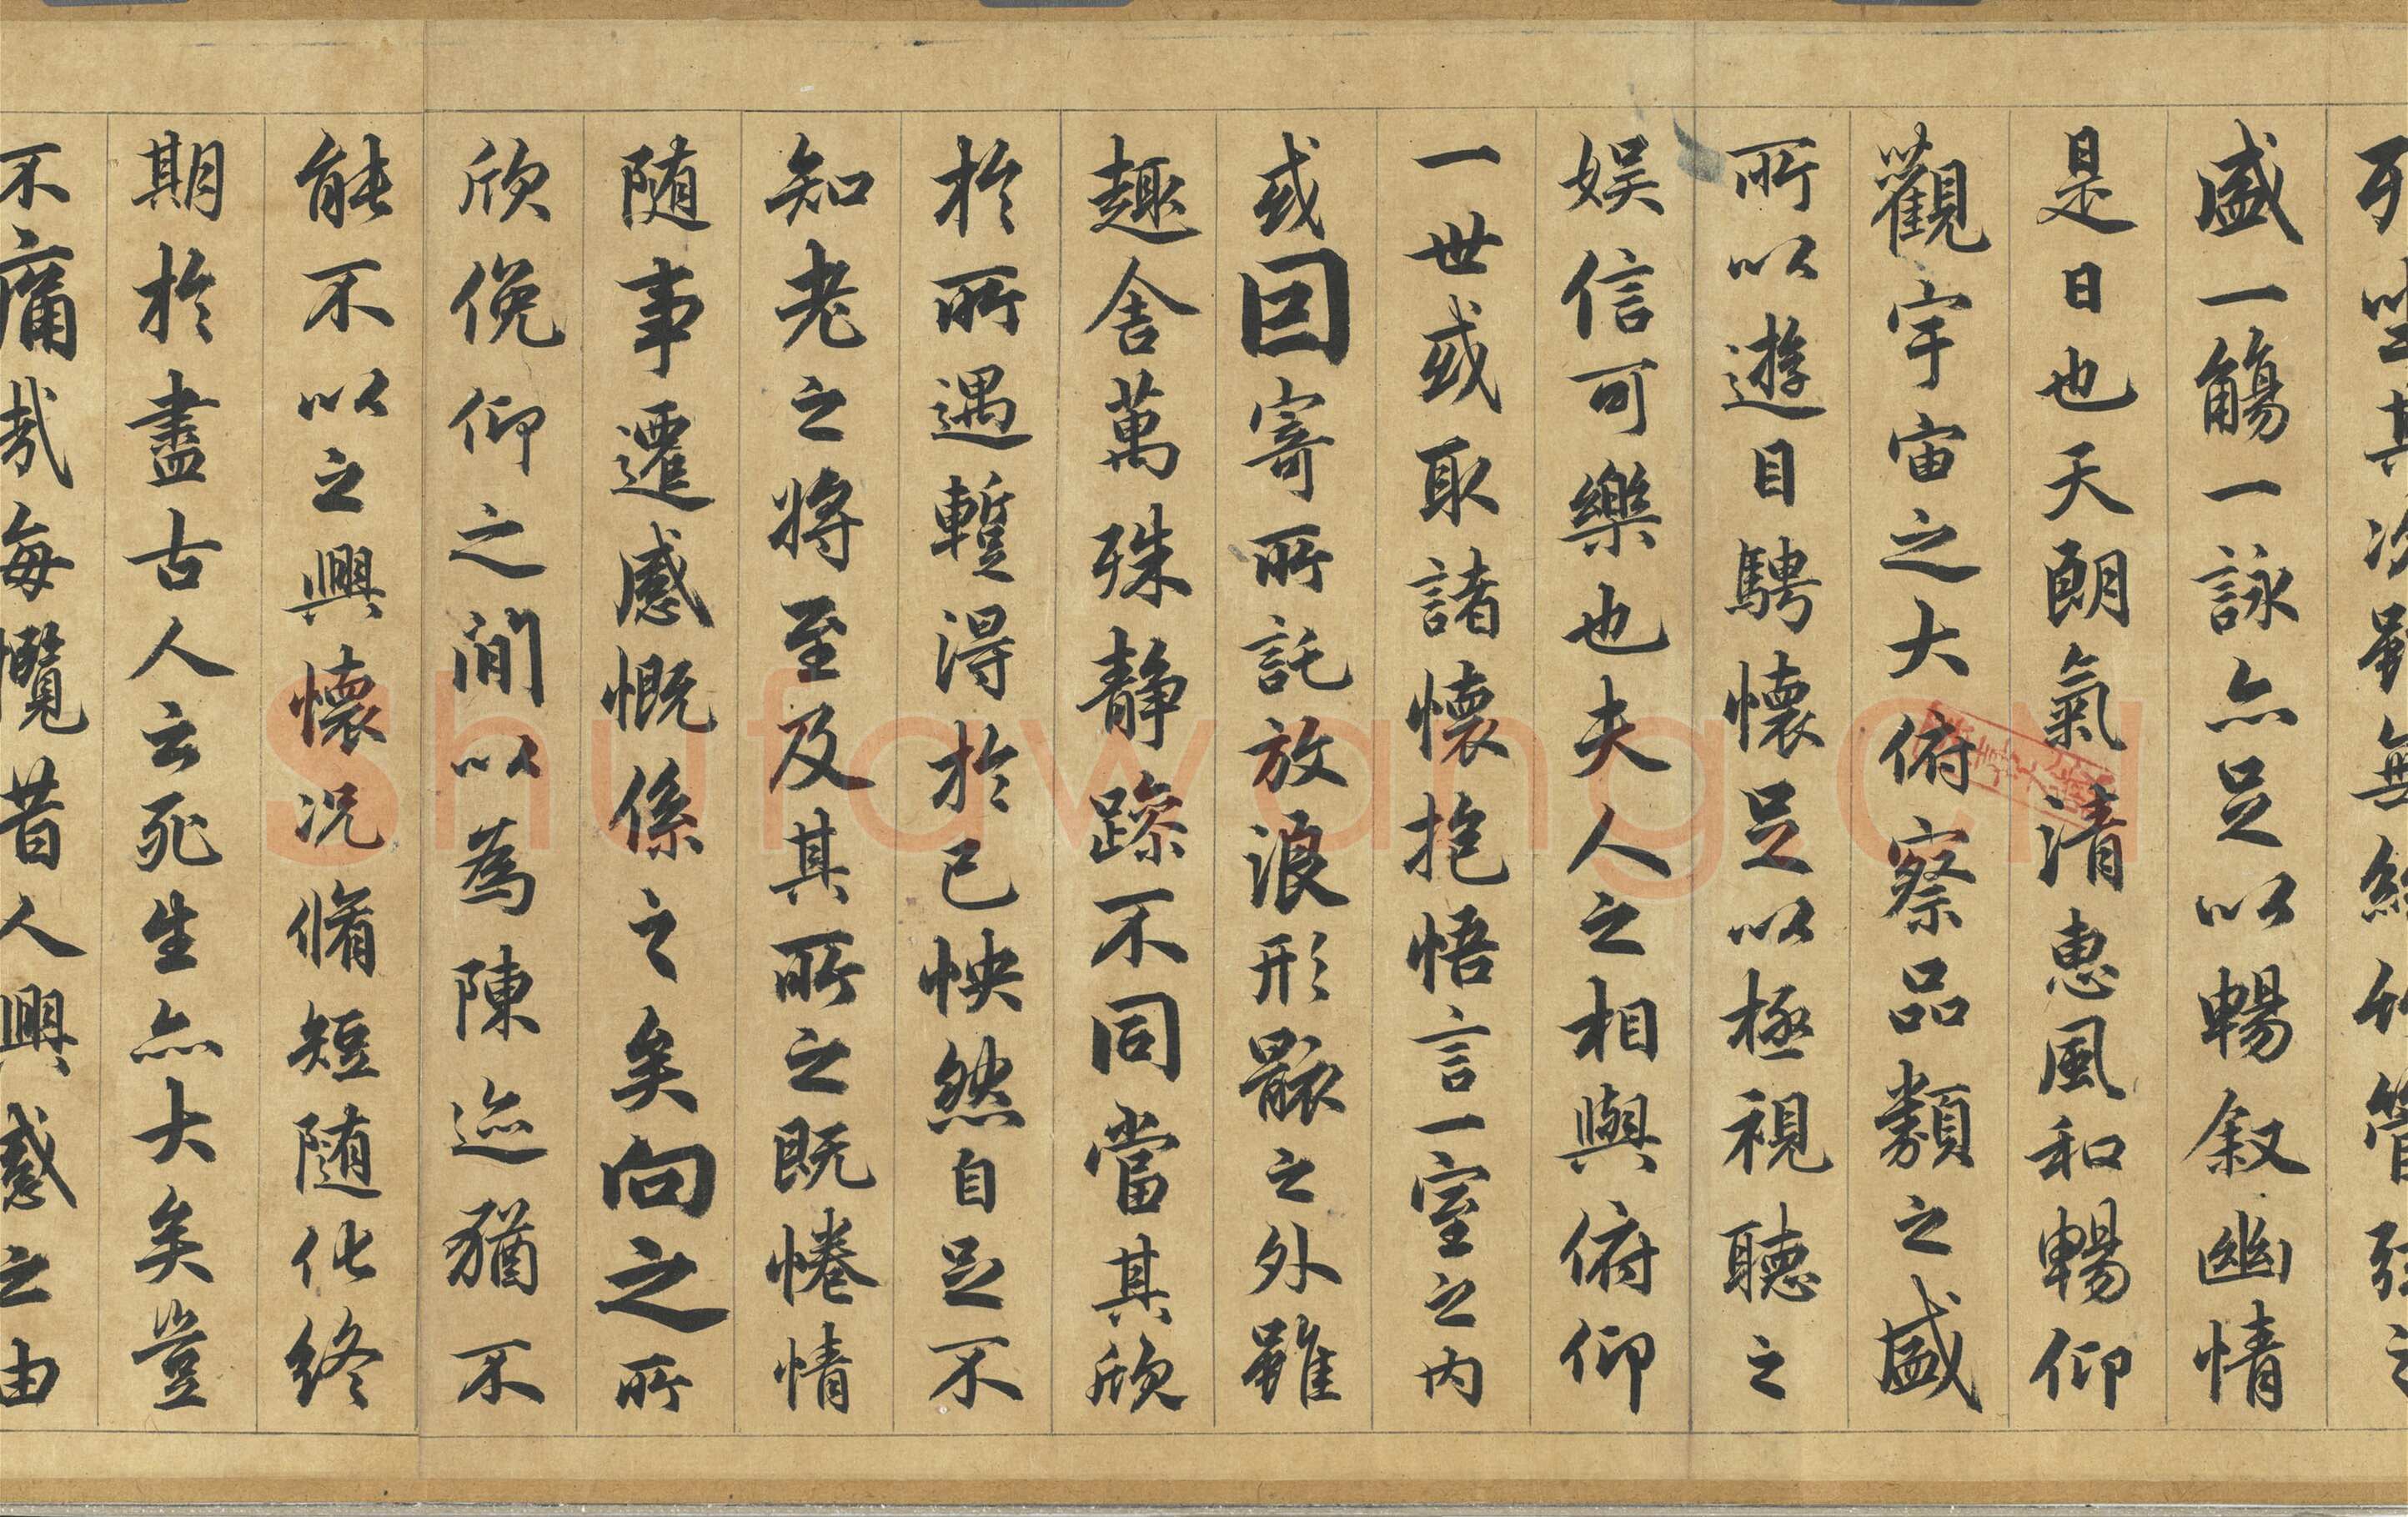 列坐其次雖無絲竹管弦之
盛一觴一詠亦足以暢叙幽情
是日也天朗氣清惠風和暢仰
觀宇宙之大俯察品類之盛
所以遊目騁懷足以極視聽之
娱信可樂也夫人之相與俯仰
一世或取諸懷抱悟言一室之内
或因寄所託放浪形骸之外雖
趣舍萬殊静躁不同當其欣
於所遇蹔得於己怏然自足不
知老之将至及其所之既惓情
随事遷感慨係之矣向之所
欣俛仰之閒以為陳迹猶不
能不以之興懷况脩短随化終
期於盡古人云死生亦大矣豈
不痛哉每攬昔人興感之由
Shufawang.CN